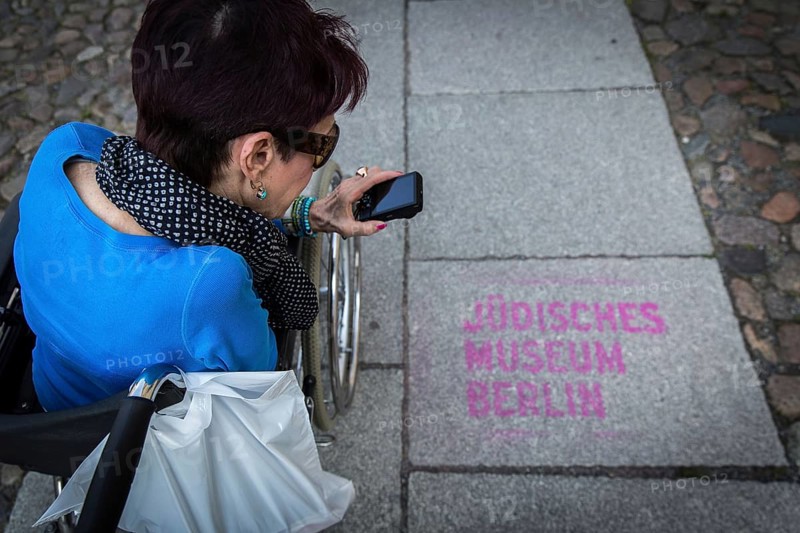 JÜDISCHES
MUSEUM
BERLIN
PHOTO12
PHOTO12
PHOTO12
PHOTO12
PHOTO12
PHOTO12